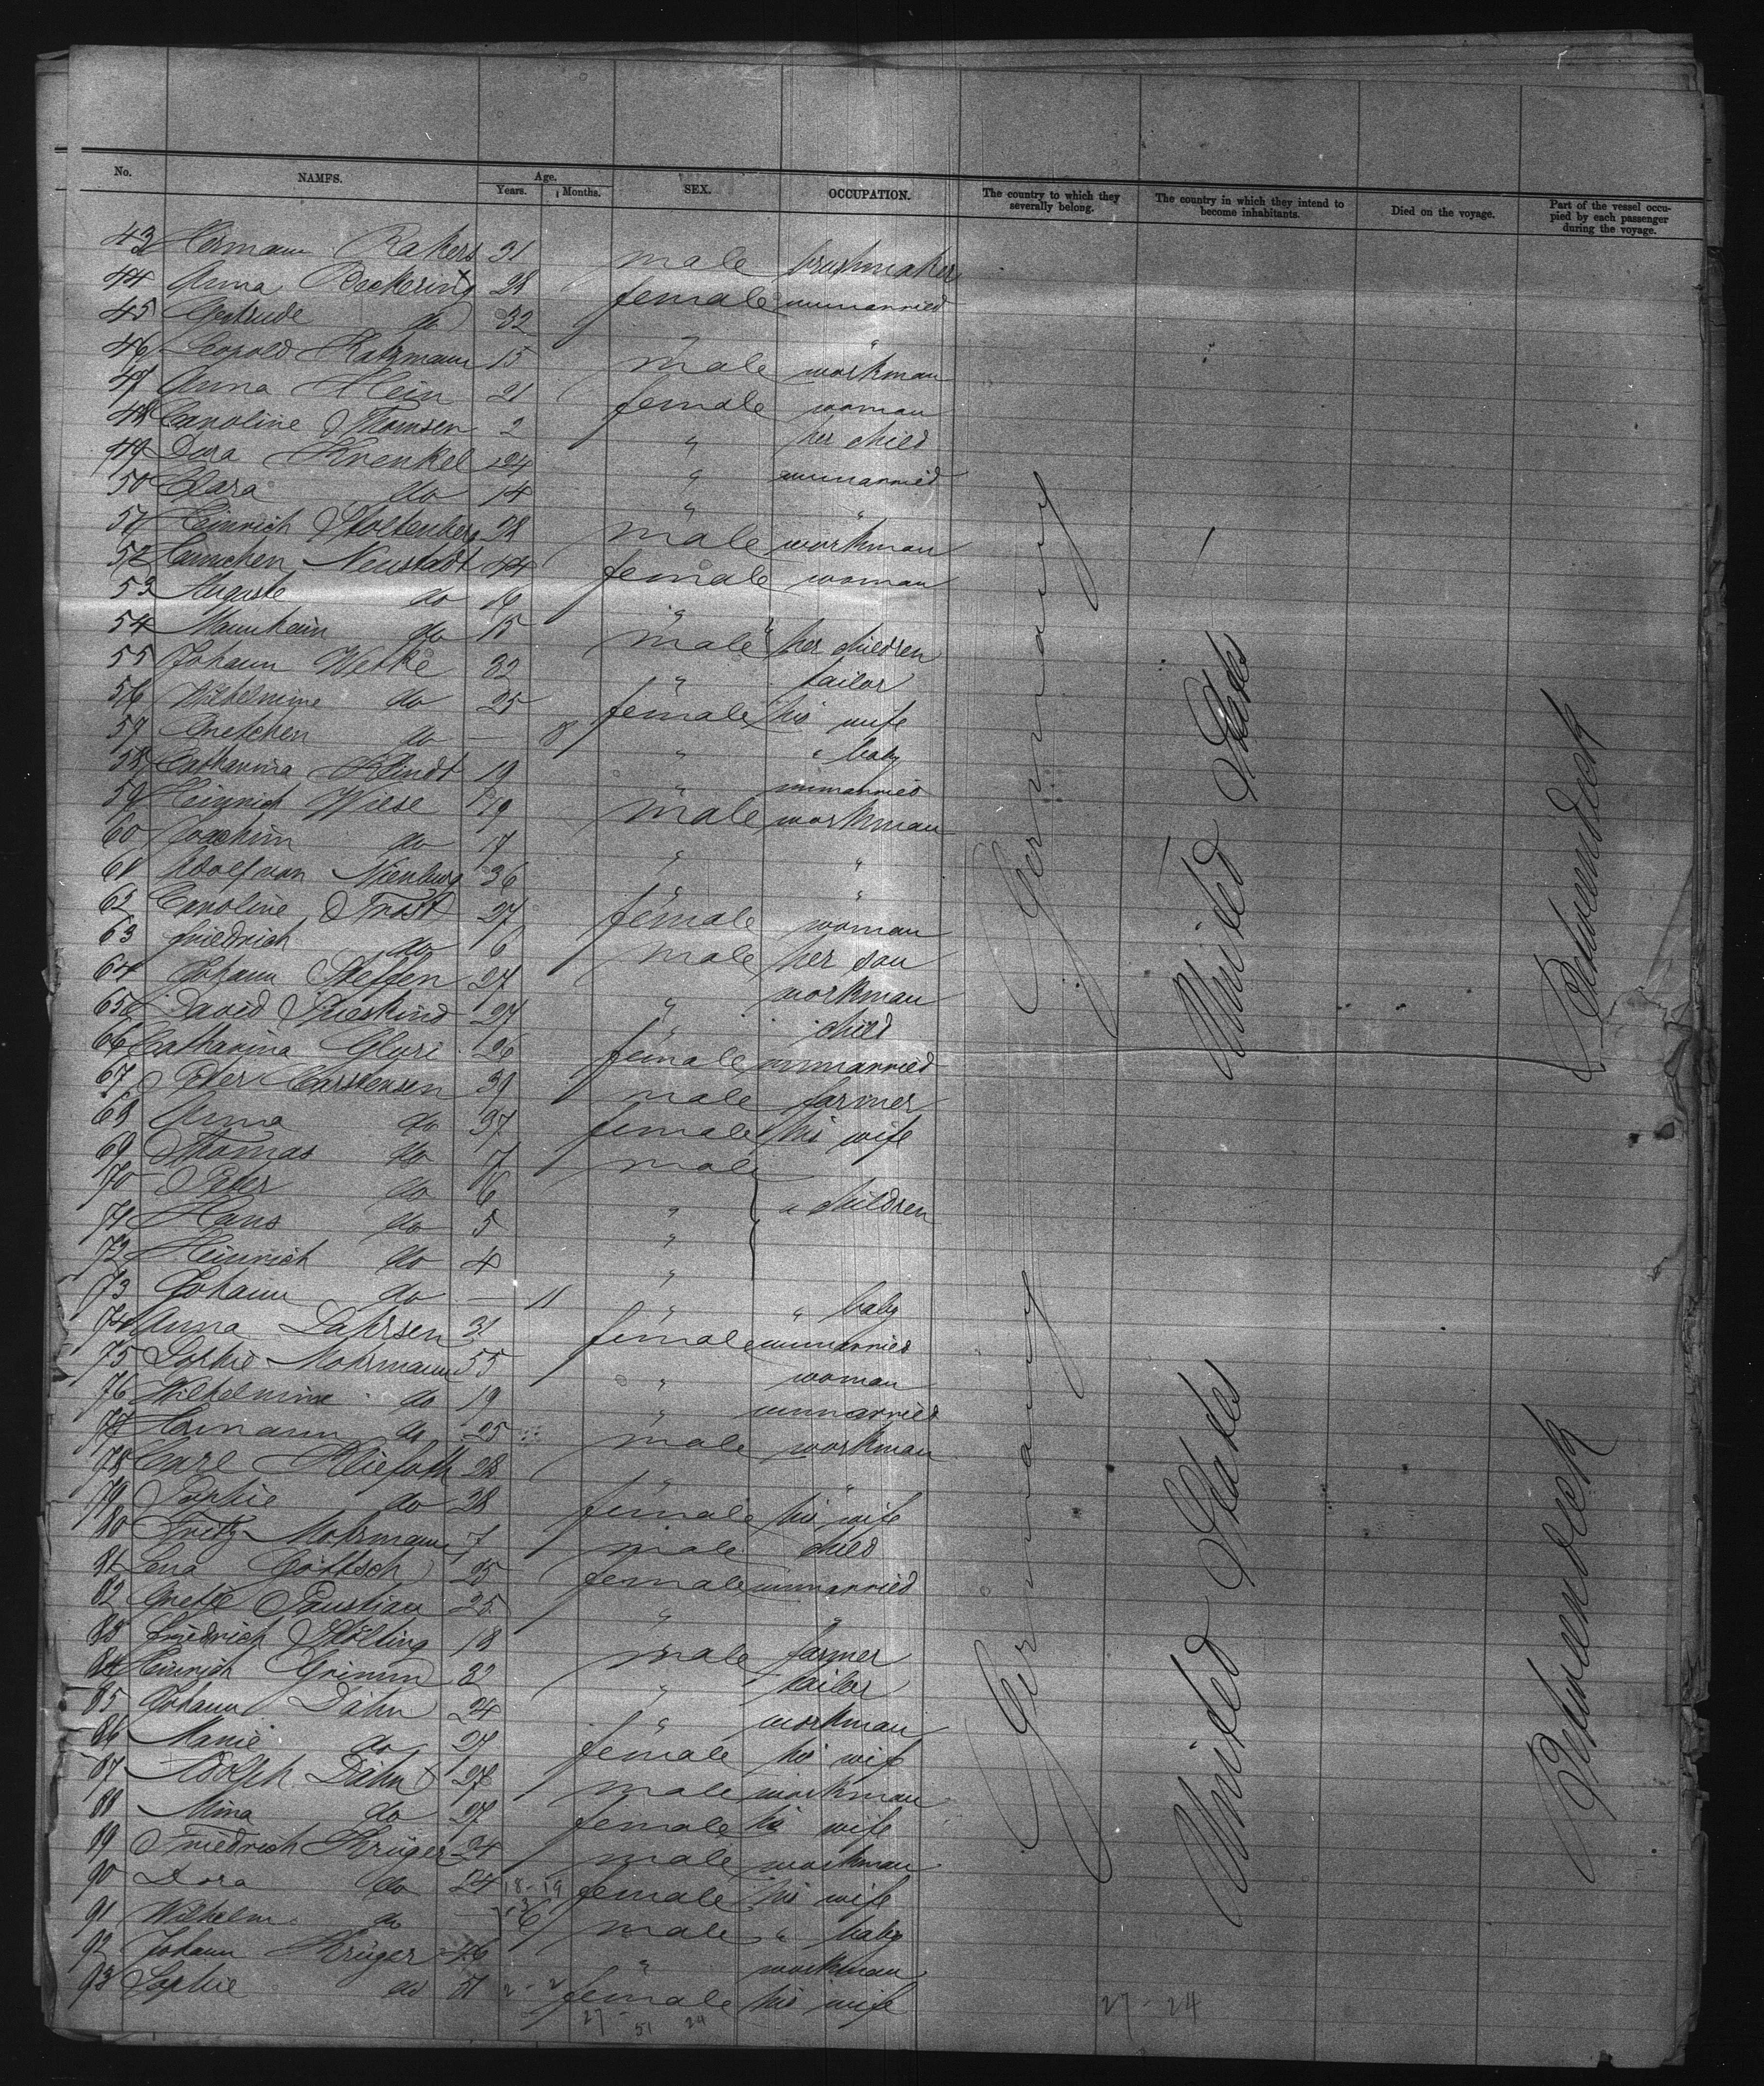 No. NAMES. Age. Years. Months. SEX. OCCUPATION. The country to which they severally belong. The country in which they intend to become inhabitants. Died on the voyage. Part of the vessel occupied by each passenger during the voyage.
43 Hermann Rakers 31 male brushmaker
44 Anna Beckering 28 female unmarried
45 Gertrude do 32 " "
46 Leopold Katzmann 15 male workman
47 Anna Hein 21 female woman
48 Caroline Thomsen 2 " her child
49 Dora Krenkel 24 " unmarried
50 Clara do 14 " "
51 Heinrich Stoltenberg 28 male workman
52 Hannchen Neustadt 44 female woman
53 Auguste do 19 " "
54 Mannheim do 15 male her children
55 Johann Wetke 32 " tailor
56 Wilhelmine do 25 female his wife
57 Gretchen do — 8 " " baby
58 Catharina Kindt 19 " unmarried
59 Heinrich Wiese 19 male workman
60 Joachim do 17 " "
61 Adolf van Nienburg 36 " "
62 Caroline Trost 27 female woman
63 Friedrich do 6 male her son
64 Johann Steffen 27 workman
65 David 27 " child
66 Catharina Glyri 26 female unmarried
67 Peter Carstensen 39 male farmer
68 Anna do 37 female his wife
69 Thomas do 7 male
70 Peter do 6 " " children
71 Hans do 5 "
72 Heinrich do 4 "
73 Johann do — 11 " " baby
74 Anna Lahrsen 31 female unmarried
75 Sophie Mohrmann 55 " woman
76 Wilhelmine do 19 " unmarried
77 Hermann do 25 male workman
78 Carl Kliefoth 28 " "
79 Sophie do 28 female his wife
80 Fritz Mohrmann 7 male child
81 Lena Göttsch 25 female unmarried
82 Gretje Paustian 25 " "
83 Friedrich Stölting 18 male farmer
84 Heinrich Grimm 32 " tailor
85 Johann Dähn 24 " workman
86 Marie do 27 female his wife
87 Adolph Dähn 27 male workman
88 Mina do 27 female his wife
89 Friedrich Krüger 24 male workman
90 Dora do 24 female his wife
91 Wilhelm do — 6 male " baby
92 Johann Krüger 46 " workman
93 Sophie do 51 female his wife
Germany United States Betweendeck
Germany United States Betweendeck
18-19
2-2
27 - 51 24
27-24